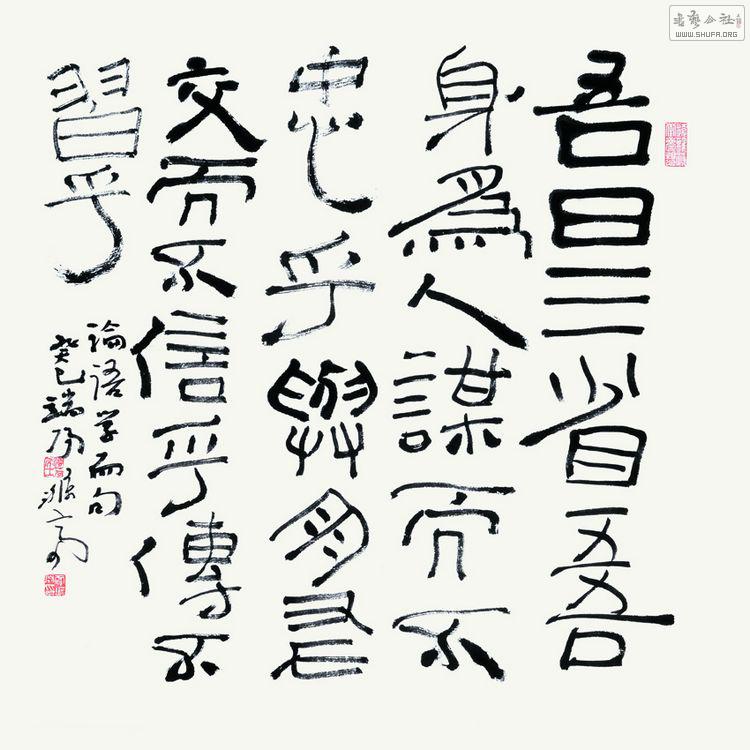 吾日三省吾
身為人謀而不
忠乎與朋友
交而不信乎傳不
習乎
論語學而句
癸巳端陽
書藝公社
WWW.SHUFA.ORG